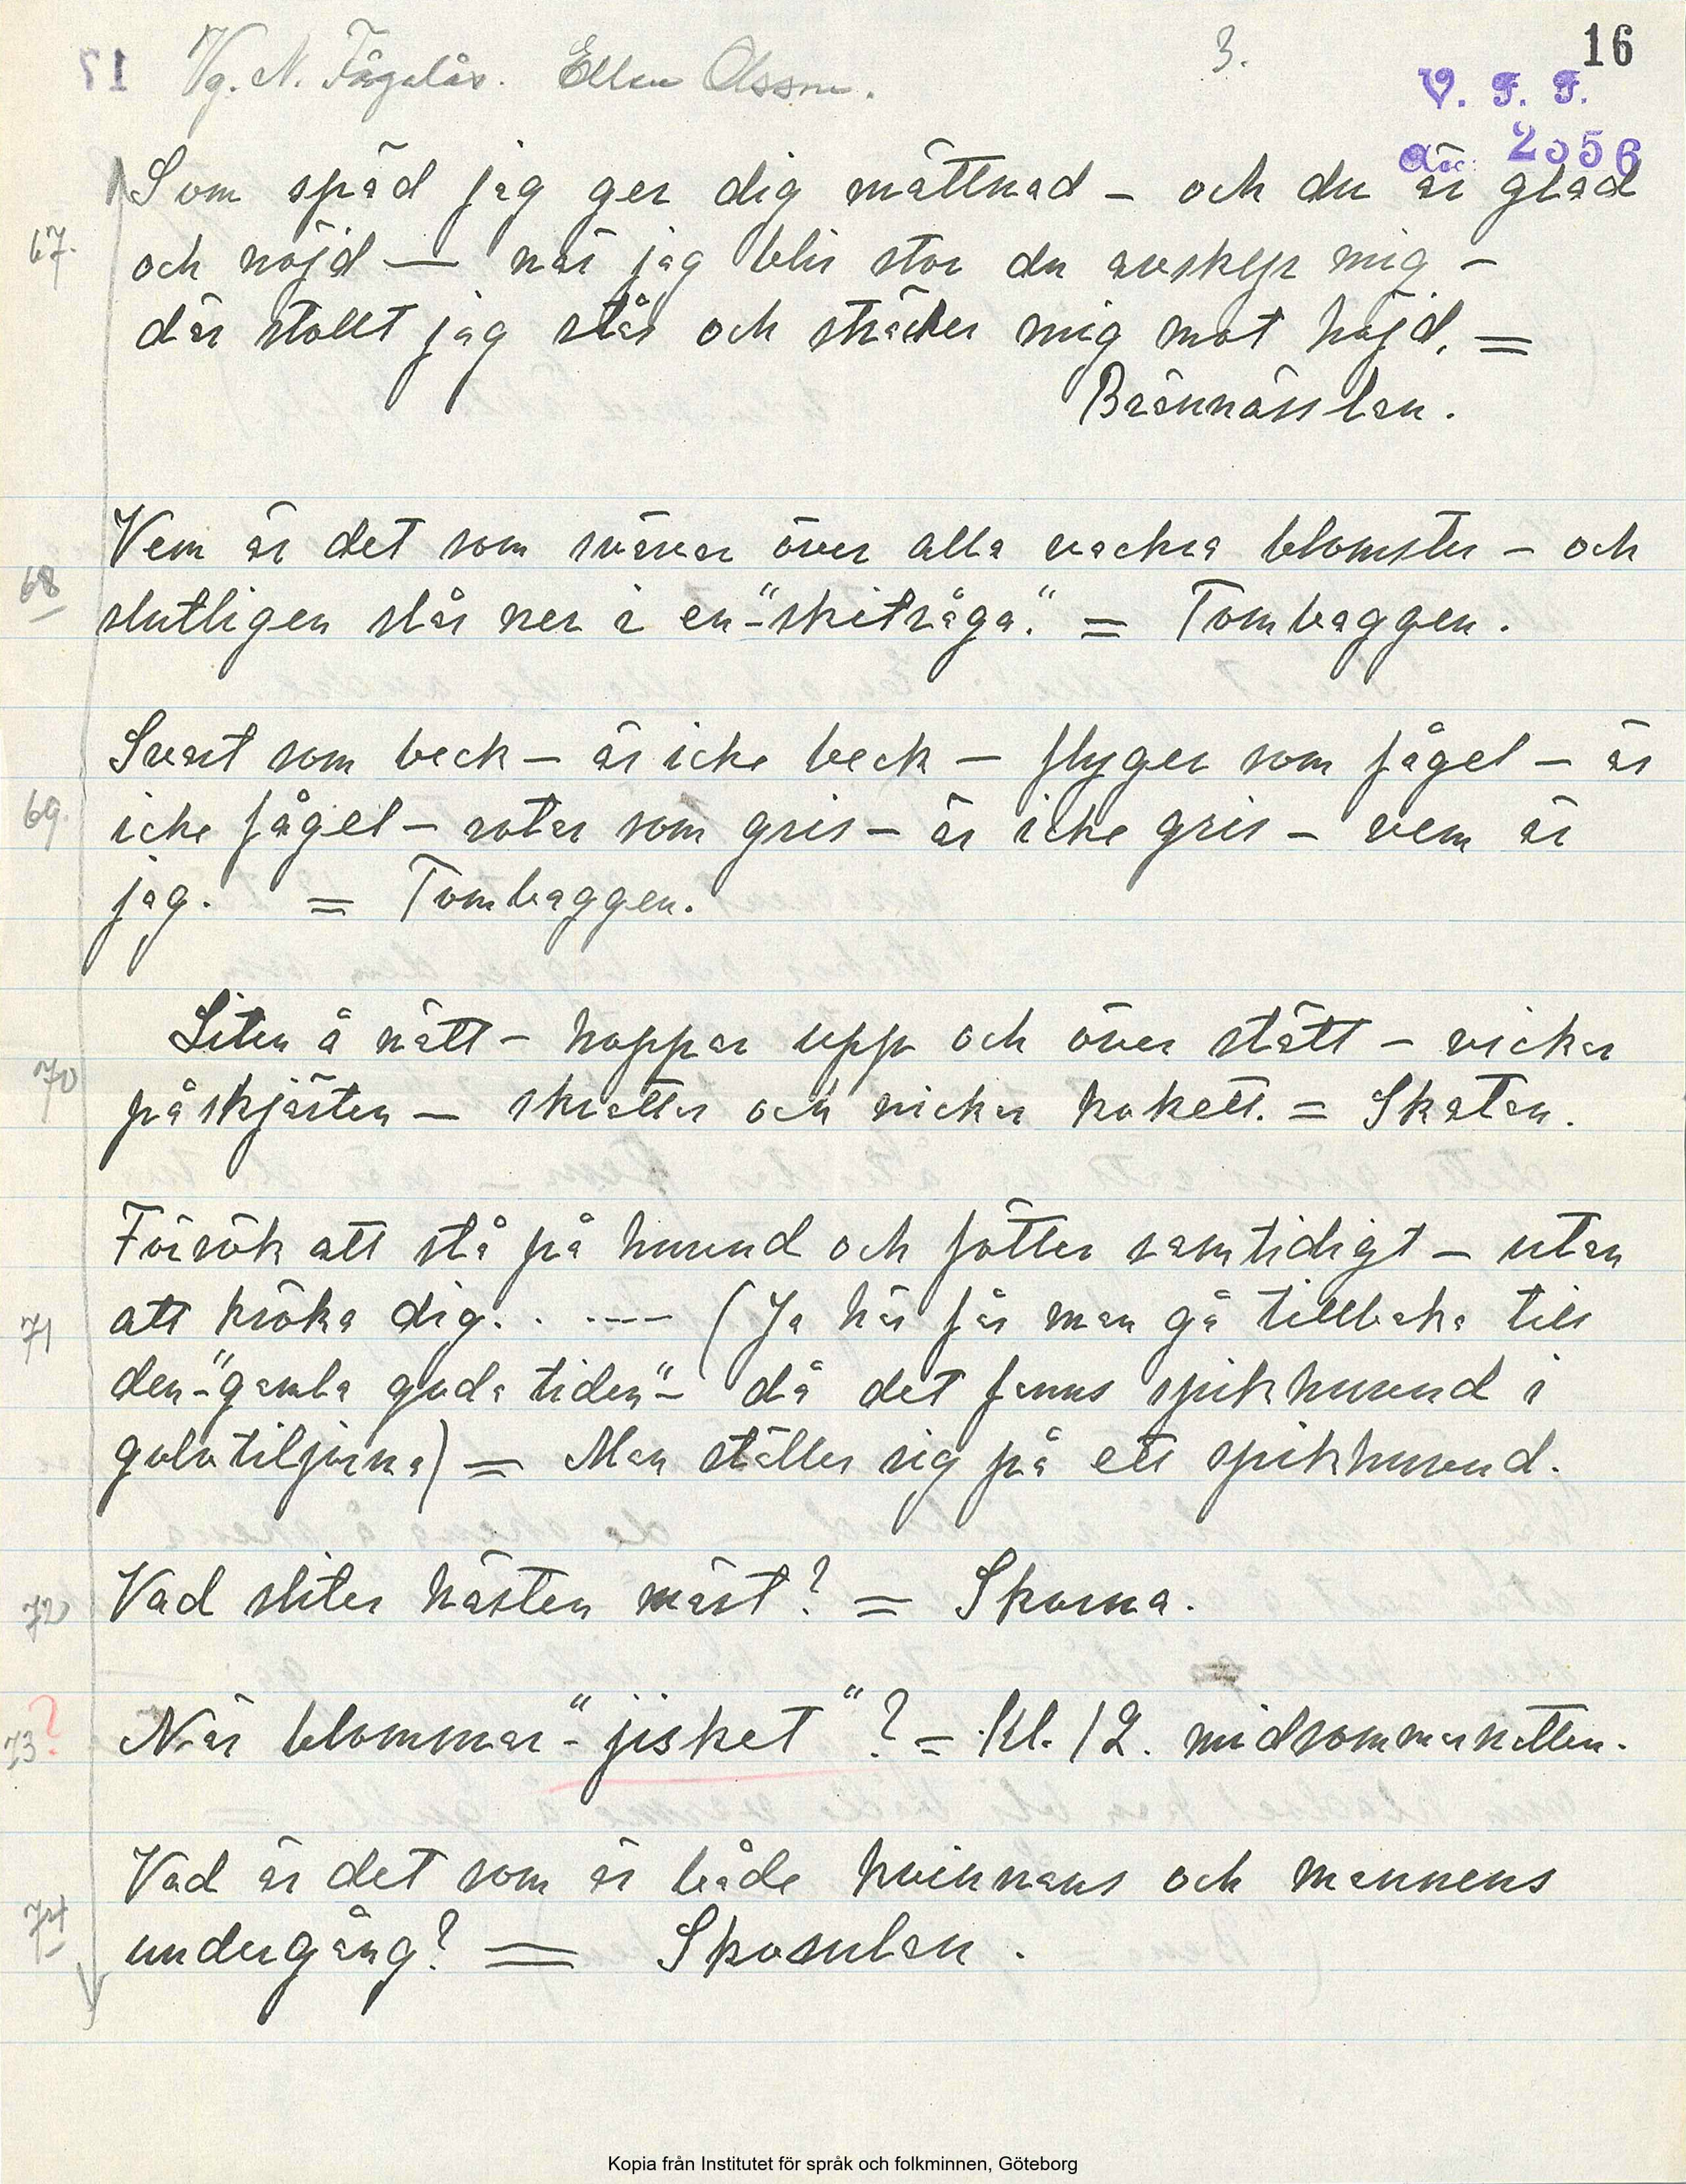 Vg. N. Fågelås. Ellen Olsson.
3.
16
V. F. F.
Acc: 2056
67.
Som späd jag ger dig mättnad – och du är glad
och nöjd – när jag blir stor du avskyr mig –
där stollt jag står och sträcker mig mot höjd. =
Brännässlan.
68
Vem är det som svävar över alla vackra blomster – och
slutligen slår ner i en-"skitråga". = Tombaggen.
69.
Svart som beck – är icke beck – flyger som fågel – är
icke fågel – rotar som gris – är icke gris – vem är
jag. = Tombaggen.
70
Liten å nätt – hoppar upp och över stätt – vickar
på skjärten – skrattar och nickar kokett. = Skatan.
71
Försök att stå på huvud och fötter samtidigt – utan
att kröka dig. . . --- (Ja här får man gå tillbaka till
den-"gamla goda tiden"- då det fanns spikhuvud i
golvtiljorna) = Man ställer sig på ett spikhuvud.
72
Vad sliter hästen mäst? = Skorna.
73 ?
När blommar-"jisket"? = Kl. 12. midsommarnatten.
74
Vad är det som är både kvinnans och mannens
undergång? = Skosulan.
Kopia från Institutet för språk och folkminnen, Göteborg